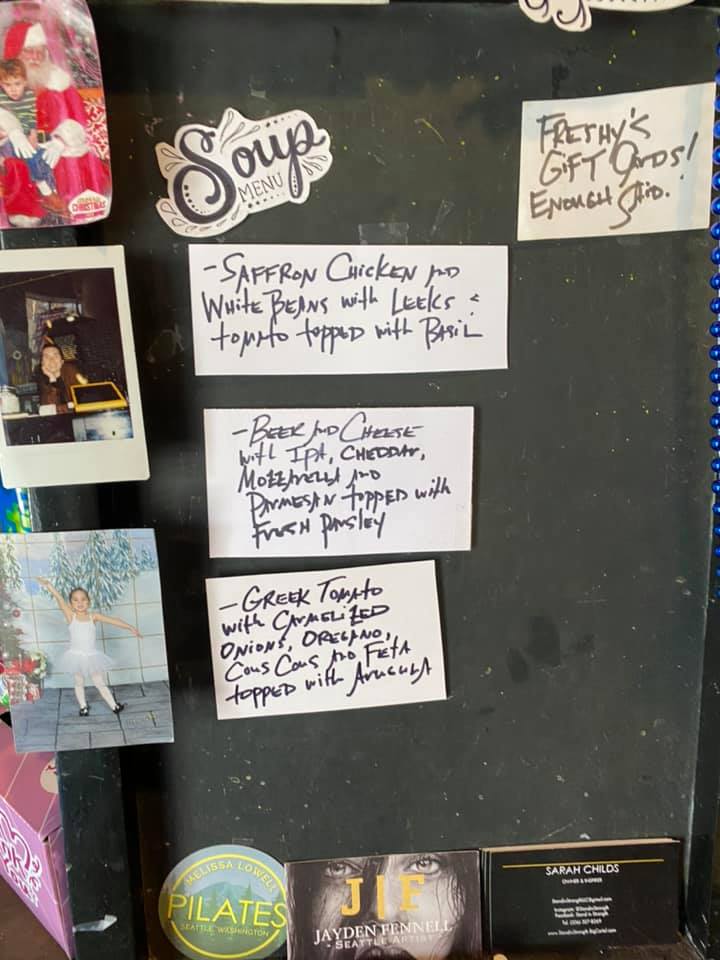 Soup
MENU
FRESHY'S
GIFT CARDS!
ENOUGH SAID.
- SAFFRON CHICKEN AND
WHITE BEANS with LEEKS &
tomato topped with BASIL
- BEER AND CHEESE
with IPA, CHEDDAR,
MOZZARELLA AND
PARMESAN topped with
FRESH PARSLEY
- GREEK TOMATO
with CARMELIZED
ONIONS, OREGANO,
COUS COUS AND FETA
topped with ARUGULA
CHRISTMAS
MELISSA LOWELL
PILATES
SEATTLE, WASHINGTON
J|F
JAYDEN FENNELL
SEATTLE ARTIST
SARAH CHILDS